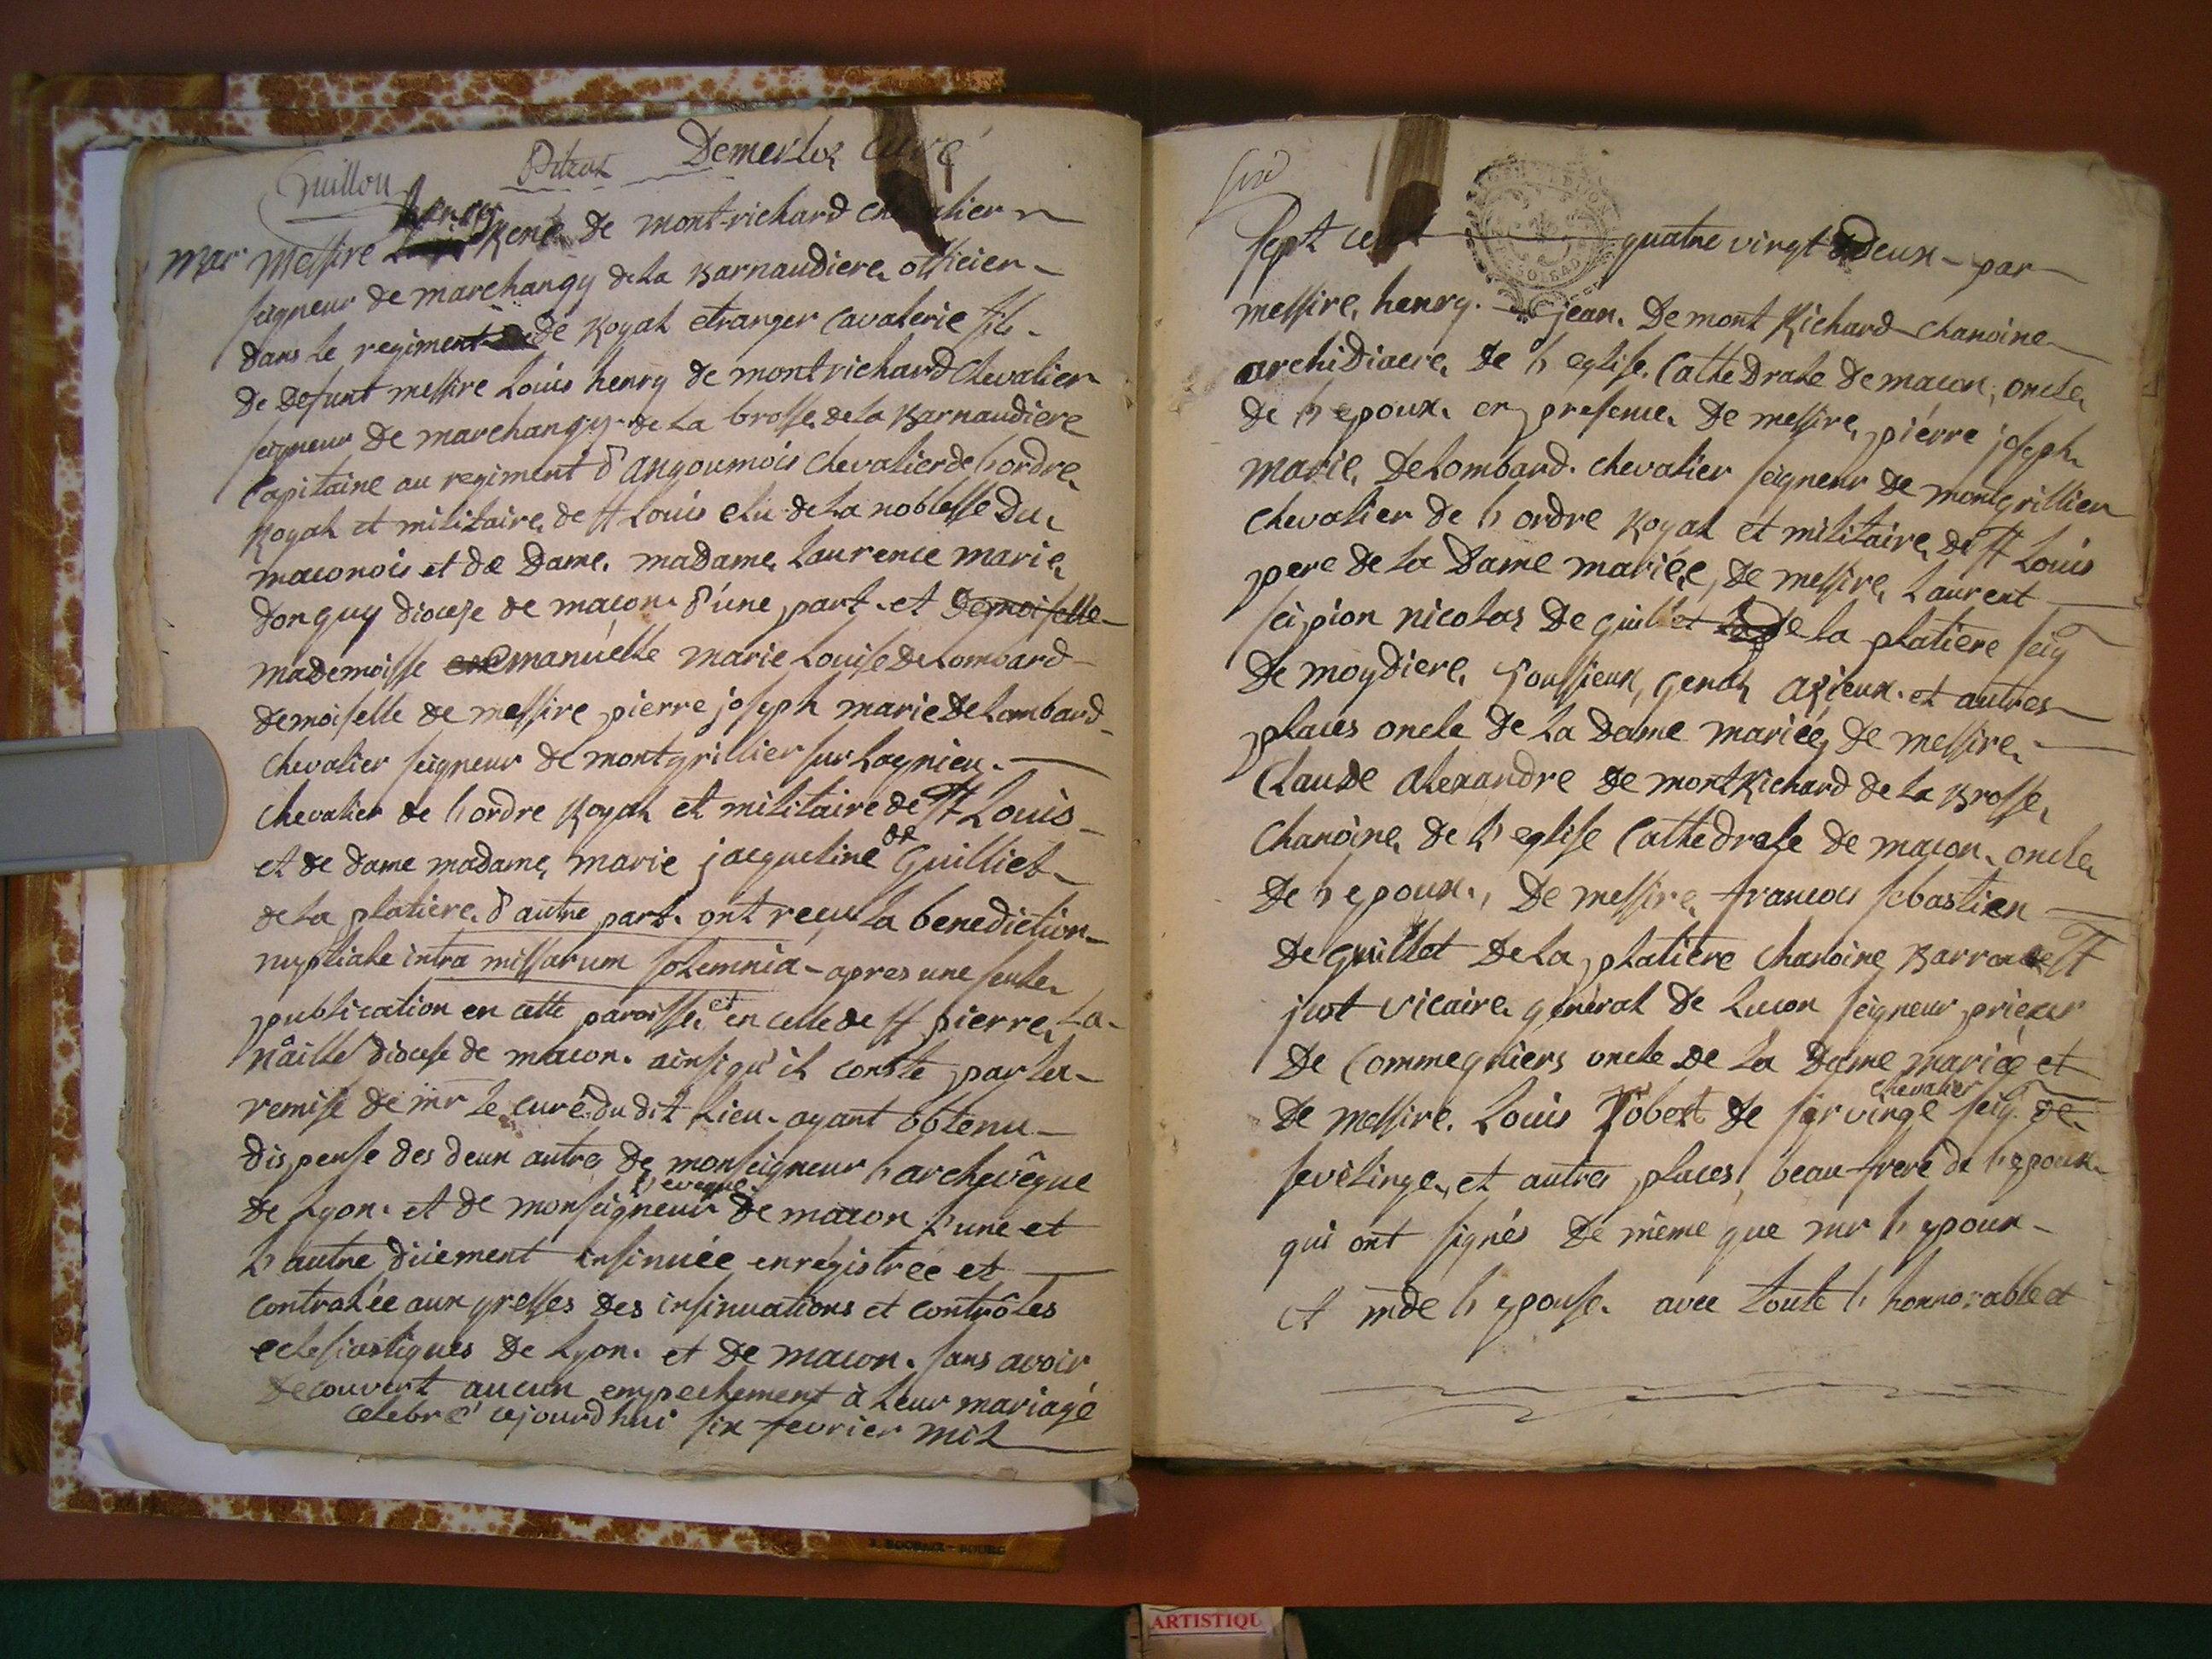 Guillon Demerloz curé
mar Messire henry René de mont-richard chevalier
seigneur de marchangy de la Barnaudiere officier
dans le regiment de Royal etranger cavalerie fils
de defunt messire Louis henry de montrichard chevalier
seigneur de marchangy de la brosse de la Barnaudiere
capitaine au regiment d'angoumois chevalier de l'ordre
Royal et militaire de St Louis elu de la noblesse du
maconois et de Dame madame Laurence marie
donguy diocese de macon d'une part et Demoiselle
mademoisse emanuelle marie Louise de Lombard
demoiselle de messire pierre joseph marie de Lombard
chevalier seigneur de montgrillier sur Lagnieu
chevalier de l'ordre Royal et militaire de St Louis
et de dame madame marie jacqueline de Guilliet
de la platiere d'autre part ont recu la benediction
nuptiale intra missarum solemnia apres une seule
publication en cette paroisse et en celle de St pierre La
naille diocese de macon ainsi qu'il conste par la
remise de mr le curé du dit Lieu ayant obtenu
dispense des deux autres de monseigneur l'archevêque
de Lyon et de monseigneur l'eveque de macon l'une et
l'autre düement insinuée enrégistrée et
contralée aux greffes des insinuations et contrôles
eclesiastiques de Lyon et de macon sans avoir
decouvert aucun empechement à leur mariage
celebré cejourd'hui six fevrier mil
sept cent quatre vingt deux par
messire henry jean De mont Richard chanoine
archidiacre de l'eglise Cathedrale de macon, oncle
de l'epoux en presence de messire pierre joseph
marie DeLombard chevalier seigneur de montgrillier
chevalier de l'ordre Royal et militaire de St Louis
pere de la Dame mariée, de messire Laurent
scipion nicolas de guillet de la platiere seig
De moydiere, soussieux, genas azieux et autres
places oncle de la Dame mariée, de messire
Claude Alexandre de montRichard de la Brosse
chanoine de l'eglise Cathedrale de macon oncle
de l'epoux, De messire francois sebastien
de guillet de la platiere chanoine Barron de St
just vicaire général de Lucon seigneur prieur
de Commequiers oncle de la Dame mariée et
de messire Louis Robert de sirvinge chevalier seig. de
sevelinge et autres places, beau-frere de l'epoux
qui ont signés de même que mr l'epoux
et mde l'epouse avec toute l'honnorable et